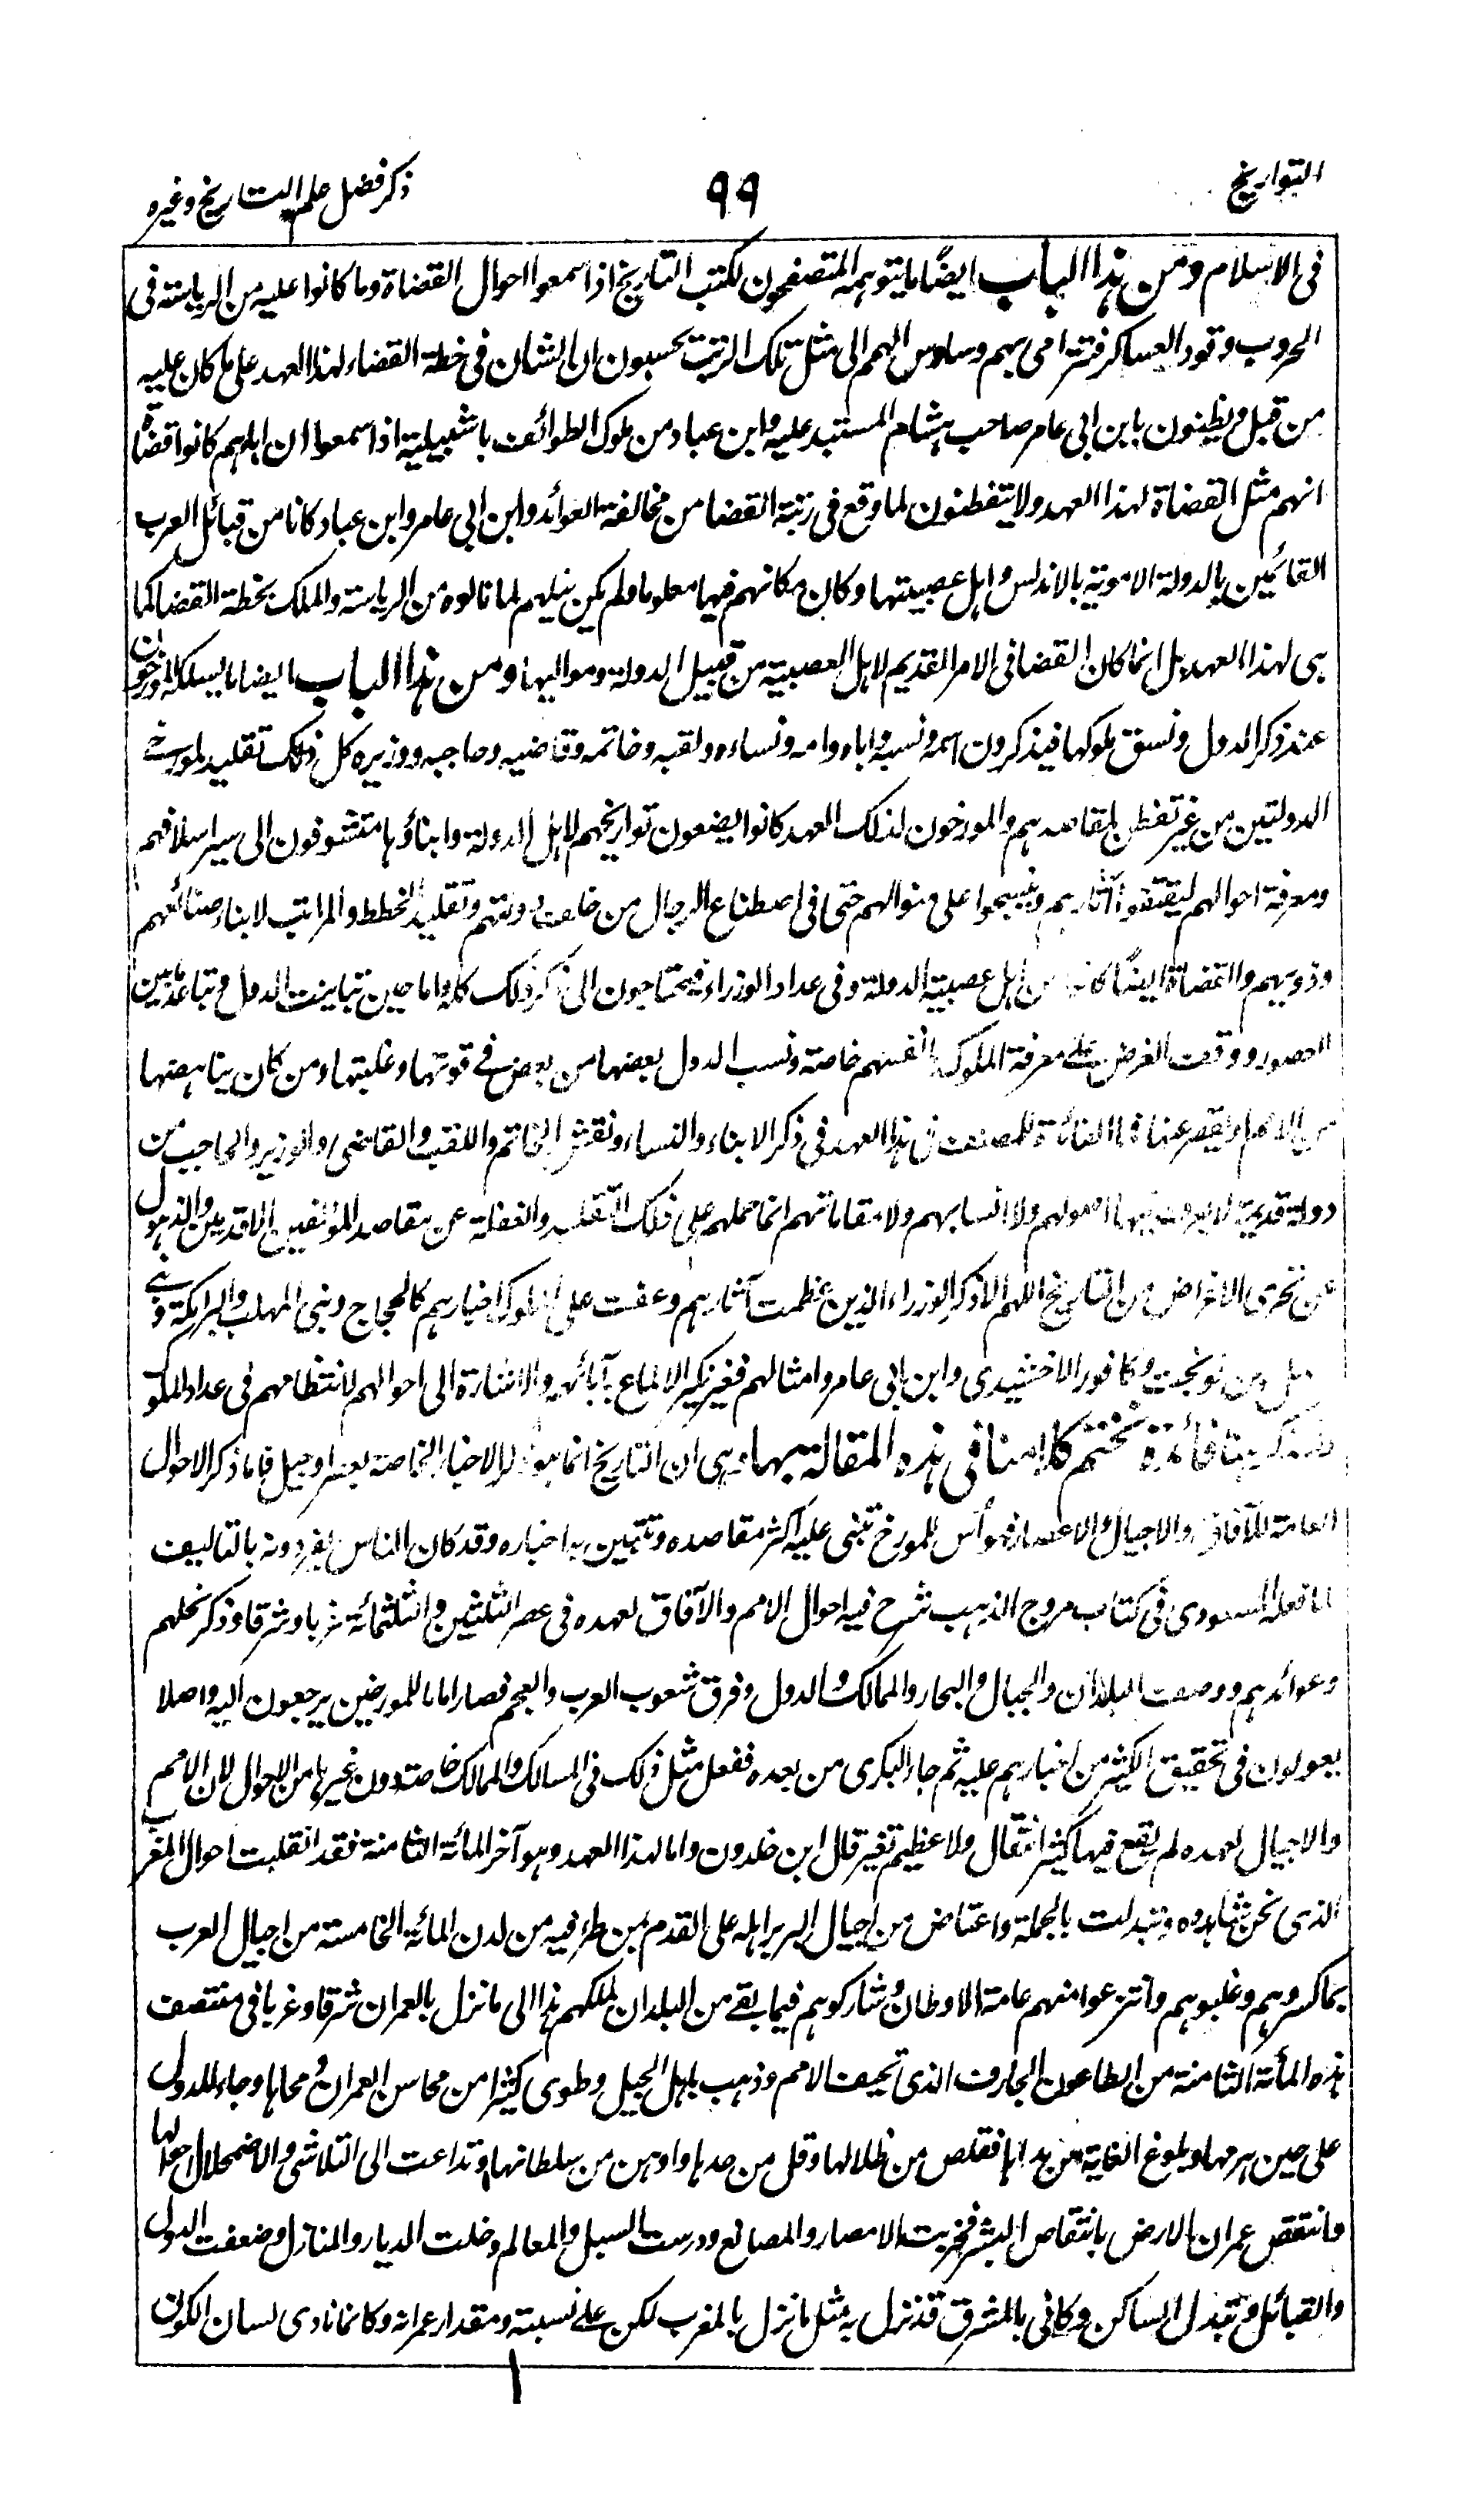 التواريخ
٩٩
ذكر فضل علم التاريخ وغيره
فى الاسلام ومن هذا الباب ايضًا ما يتوهمه المتصفحون لكتب التاريخ اذا سمعوا احوال القضاة وما كانوا عليه من الرياسته فى
الحروب وقود العساكر فتترامى بهم وساوس الهمم الى مثل تلك الرتب يحسبون ان الشان فى خطة القضاء لهذا العهد على ما كان عليه
من قبل ويظنون بابن ابى عامر صاحب هشام المستبد عليه وابن عباد من ملوك الطوائف باشبيلية اذا سمعوا ان اباءهم كانوا قضاة
انهم مثل القضاة لهذا العهد ولا يتفطنون لما وقع فى رتبة القضا من مخالفة العوائد وابن ابى عامر وابن عباد كانا من قبائل العرب
القائمين بالدولة الاموية بالاندلس واهل عصبيتها وكان مكانهم فيها معلوما ولم يكن نيلهم لما نالوه من الرياسته والملك بخطة القضا كما
هى لهذا العهد بل انما كان القضا فى الامر القديم لاهل العصبية من قبيل الدولة ومواليها ومن هذا الباب ايضا ما يسلكه المورخون
عند ذكر الدول ونسق ملوكها فيذكرون اسمه ونسبه واباه وامه ونساءه ولقبه وخاتمه وقاضيه وحاجبه ووزيره كل ذلك تقليد لمورخى
الدولتين من غير تفطن لمقاصدهم والمورخون لذلك العهد كانوا يضعون تواريخهم لاهل الدولة وابناؤها متشوفون الى سير اسلافهم
ومعرفة احوالهم ليقتفوا آثارهم وينسجوا على منوالهم حتى فى اصطناع الرجال من خلف دولتهم وتقليد الخطط والمراتب لابناء صنائعهم
وذويهم والقضاة ايضًا كانوا من اهل عصبية الدولة وفى عداد الوزراء فيحتاجون الى ذكر ذلك كله واما حين تباينت الدول وتباعد ما بين
العصور ووقف الغرض على معرفة الملوك بانفسهم خاصة ونسب الدول بعضها من بعض فى قوتها وغلبتها ومن كان يناهضها
من الامم او يقصر عنها فما الفائدة للمصنف فى هذا العهد فى ذكر الابناء والنساء ونقش الخاتم واللقب والقاضى والوزير والحاجب من
دولة قديمة لا يعرف فيها اصولهم ولا انسابهم ولا مقاماتهم انما حملهم على ذلك التقليد والغفلة عن مقاصد المؤلفين الاقدمين والذهول
عن تحرى الاغراض من التاريخ اللهم الا ذكر الوزراء الذين عظمت آثارهم وعفت على الملوك اخبارهم كالحجاج وبنى المهلب والبرامكة وبنى
سهل بن نوبخت وكافور الاخشيدى وابن ابى عامر وامثالهم فغير نكير الالماع بآبائهم والاشارة الى احوالهم لانتظامهم فى عداد الملوك
ولنذكر هنا فائدة نختم كلامنا فى هذه المقالة بها وهى ان التاريخ انما هو ذكر الاخبار الخاصة بعصر او جيل فاما ذكر الاحوال
العامة للآفاق والاجيال والاعصار فهو أس للمورخ تبنى عليه اكثر مقاصده وتتبين به اخباره وقد كان الناس يفردونه بالتاليف
كما فعله المسعودى فى كتاب مروج الذهب شرح فيه احوال الامم والآفاق لعهده فى عصر الثلثين والثلثمائة غربا وشرقا وذكر نحلهم
وعوائدهم ووصف البلدان والجبال والبحار والممالك والدول وفرق شعوب العرب والعجم فصار اماما للمورخين يرجعون اليه واصلا
يعولون فى تحقيق الكثير من اخبارهم عليه ثم جاء البكرى من بعده ففعل مثل ذلك فى المسالك والممالك خاصة دون غيرها من الاحوال لان الامم
والاجيال لعهده لم يقع فيها كثير انتقال ولا عظيم تغير قال ابن خلدون واما لهذا العهد وهو آخر المائة الثامنة فقد انقلبت احوال المغرب
الذى نحن شاهدوه وتبدلت بالجملة واعتاض من اجيال البربر اهله على القدم بمن طرء فيه من لدن المائة الخامسة من اجيال العرب
بما كسروهم وغلبوهم وانتزعوا منهم عامة الاوطان وشاركوهم فيما بقے من البلدان لملكهم هذا الى ما نزل بالعمران شرقا وغربا فى منتصف
هذه المأئة الثامنة من الطاعون الجارف الذى تحيف الامم وذهب باهل الجيل وطوى كثيرا من محاسن العمران ومحاها وجاء للدول
على حين هرمها وبلوغ الغاية من مداها فقلص من ظلالها وقل من حدها واوهن من سلطانها وتداعت الى التلاشى والاضمحلال احوالها
وانتقض عمران الارض بانتقاص البشر فخربت الامصار والمصانع ودرست السبل والمعالم وخلت الديار والمنازل وضعفت الدول
والقبائل وتبدل الساكن وكانى بالمشرق قد نزل به مثل ما نزل بالمغرب لكن علے نسبته ومقدار عمرانه وكانما نادى لسان الكون